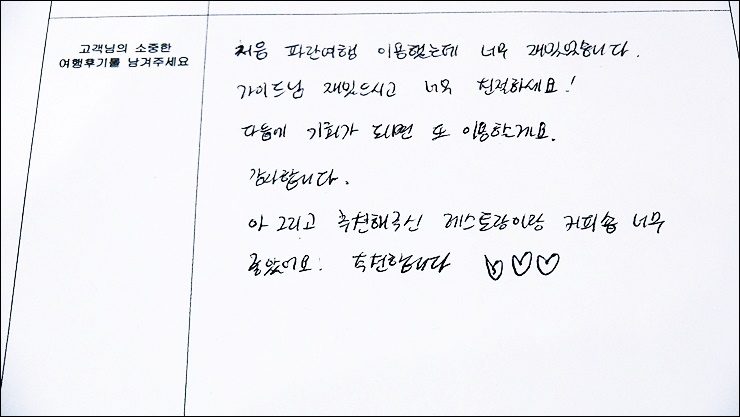 고객님의 소중한
여행후기를 남겨주세요
처음 파란여행 이용했는데 너무 재밌었습니다.
가이드님 재밌으시고 너무 친절하세요!
다음에 기회가 되면 또 이용할게요.
감사합니다.
아 그리고 추천해주신 레스토랑이랑 커피숍 너무
좋았어요! 추천합니다 ♡♡♡